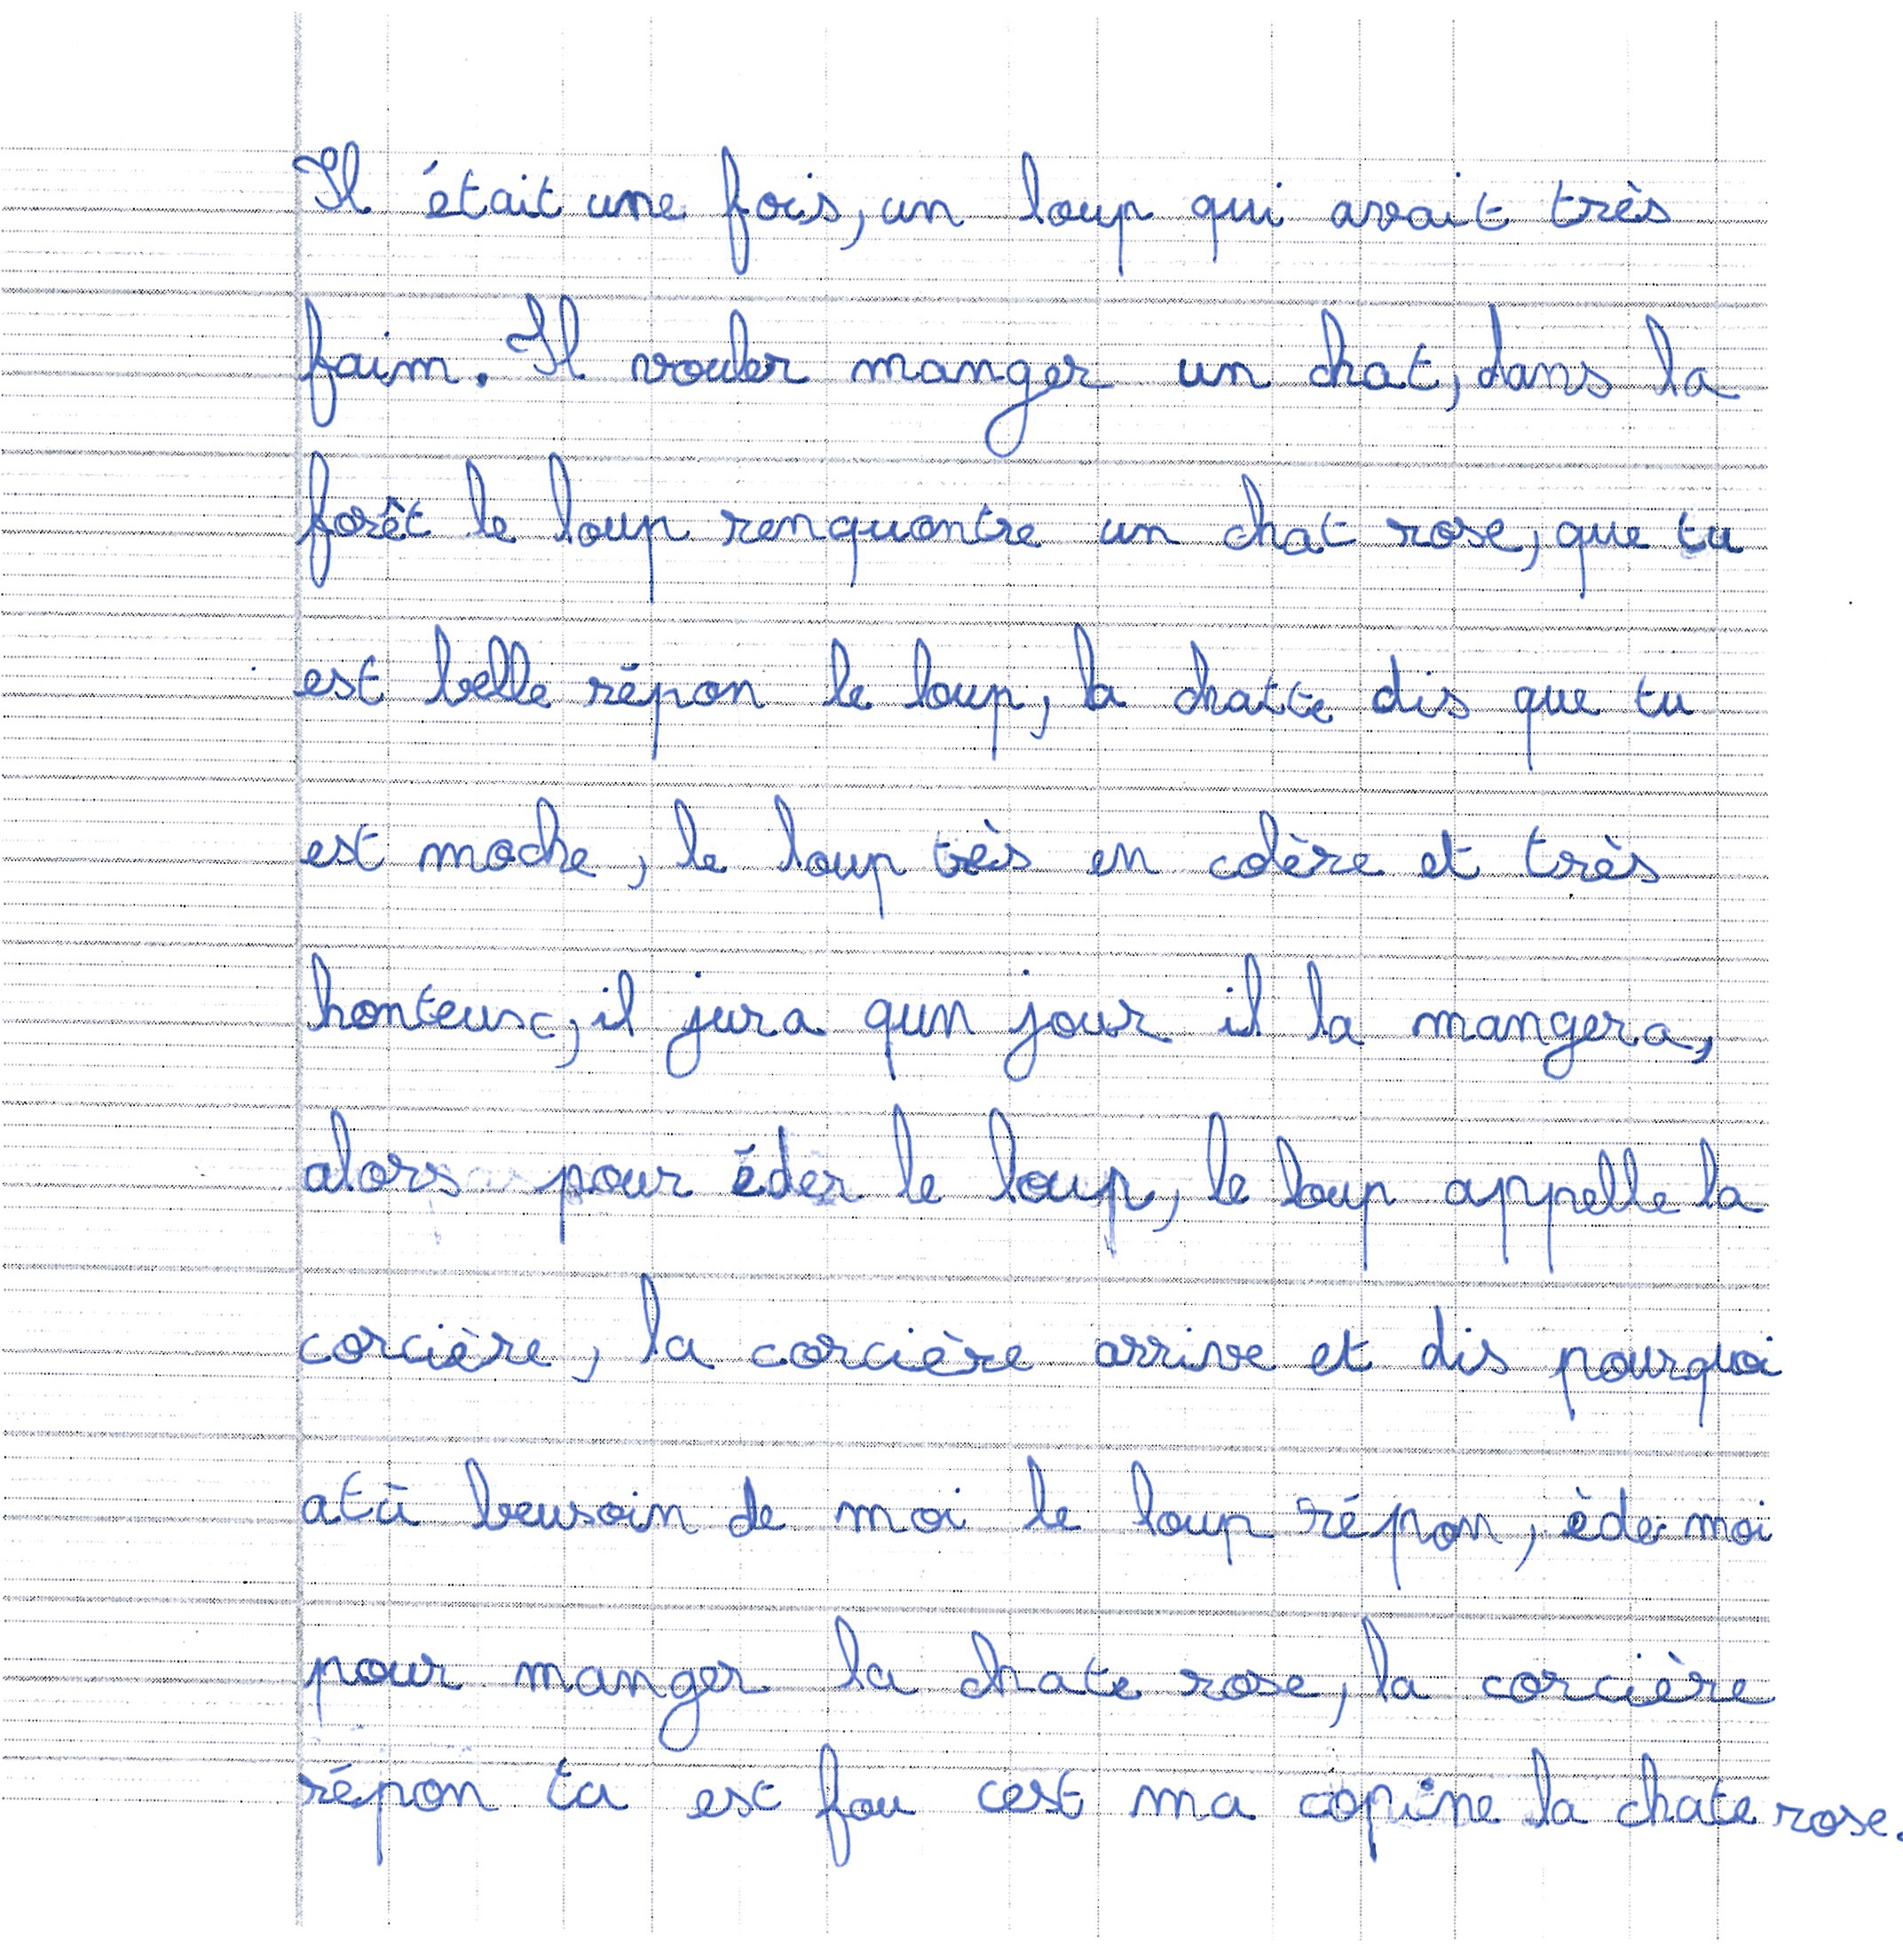 Il était une fois, un loup qui avait très
faim. Il vouler manger un chat, dans la
forêt le loup renquontre un chat rose, que tu
est belle répon le loup, la chatte dis que tu
est moche, le loup très en colère et très
honteux, il jura qun jour il la mangera,
alors pour éder le loup, le loup appelle la
corcière, la corcière arrive et dis pourquoi
atù beusoin de moi le loup répon, ède moi
pour manger la chate rose, la corcière
répon ta est fou cest ma copine la chate rose.